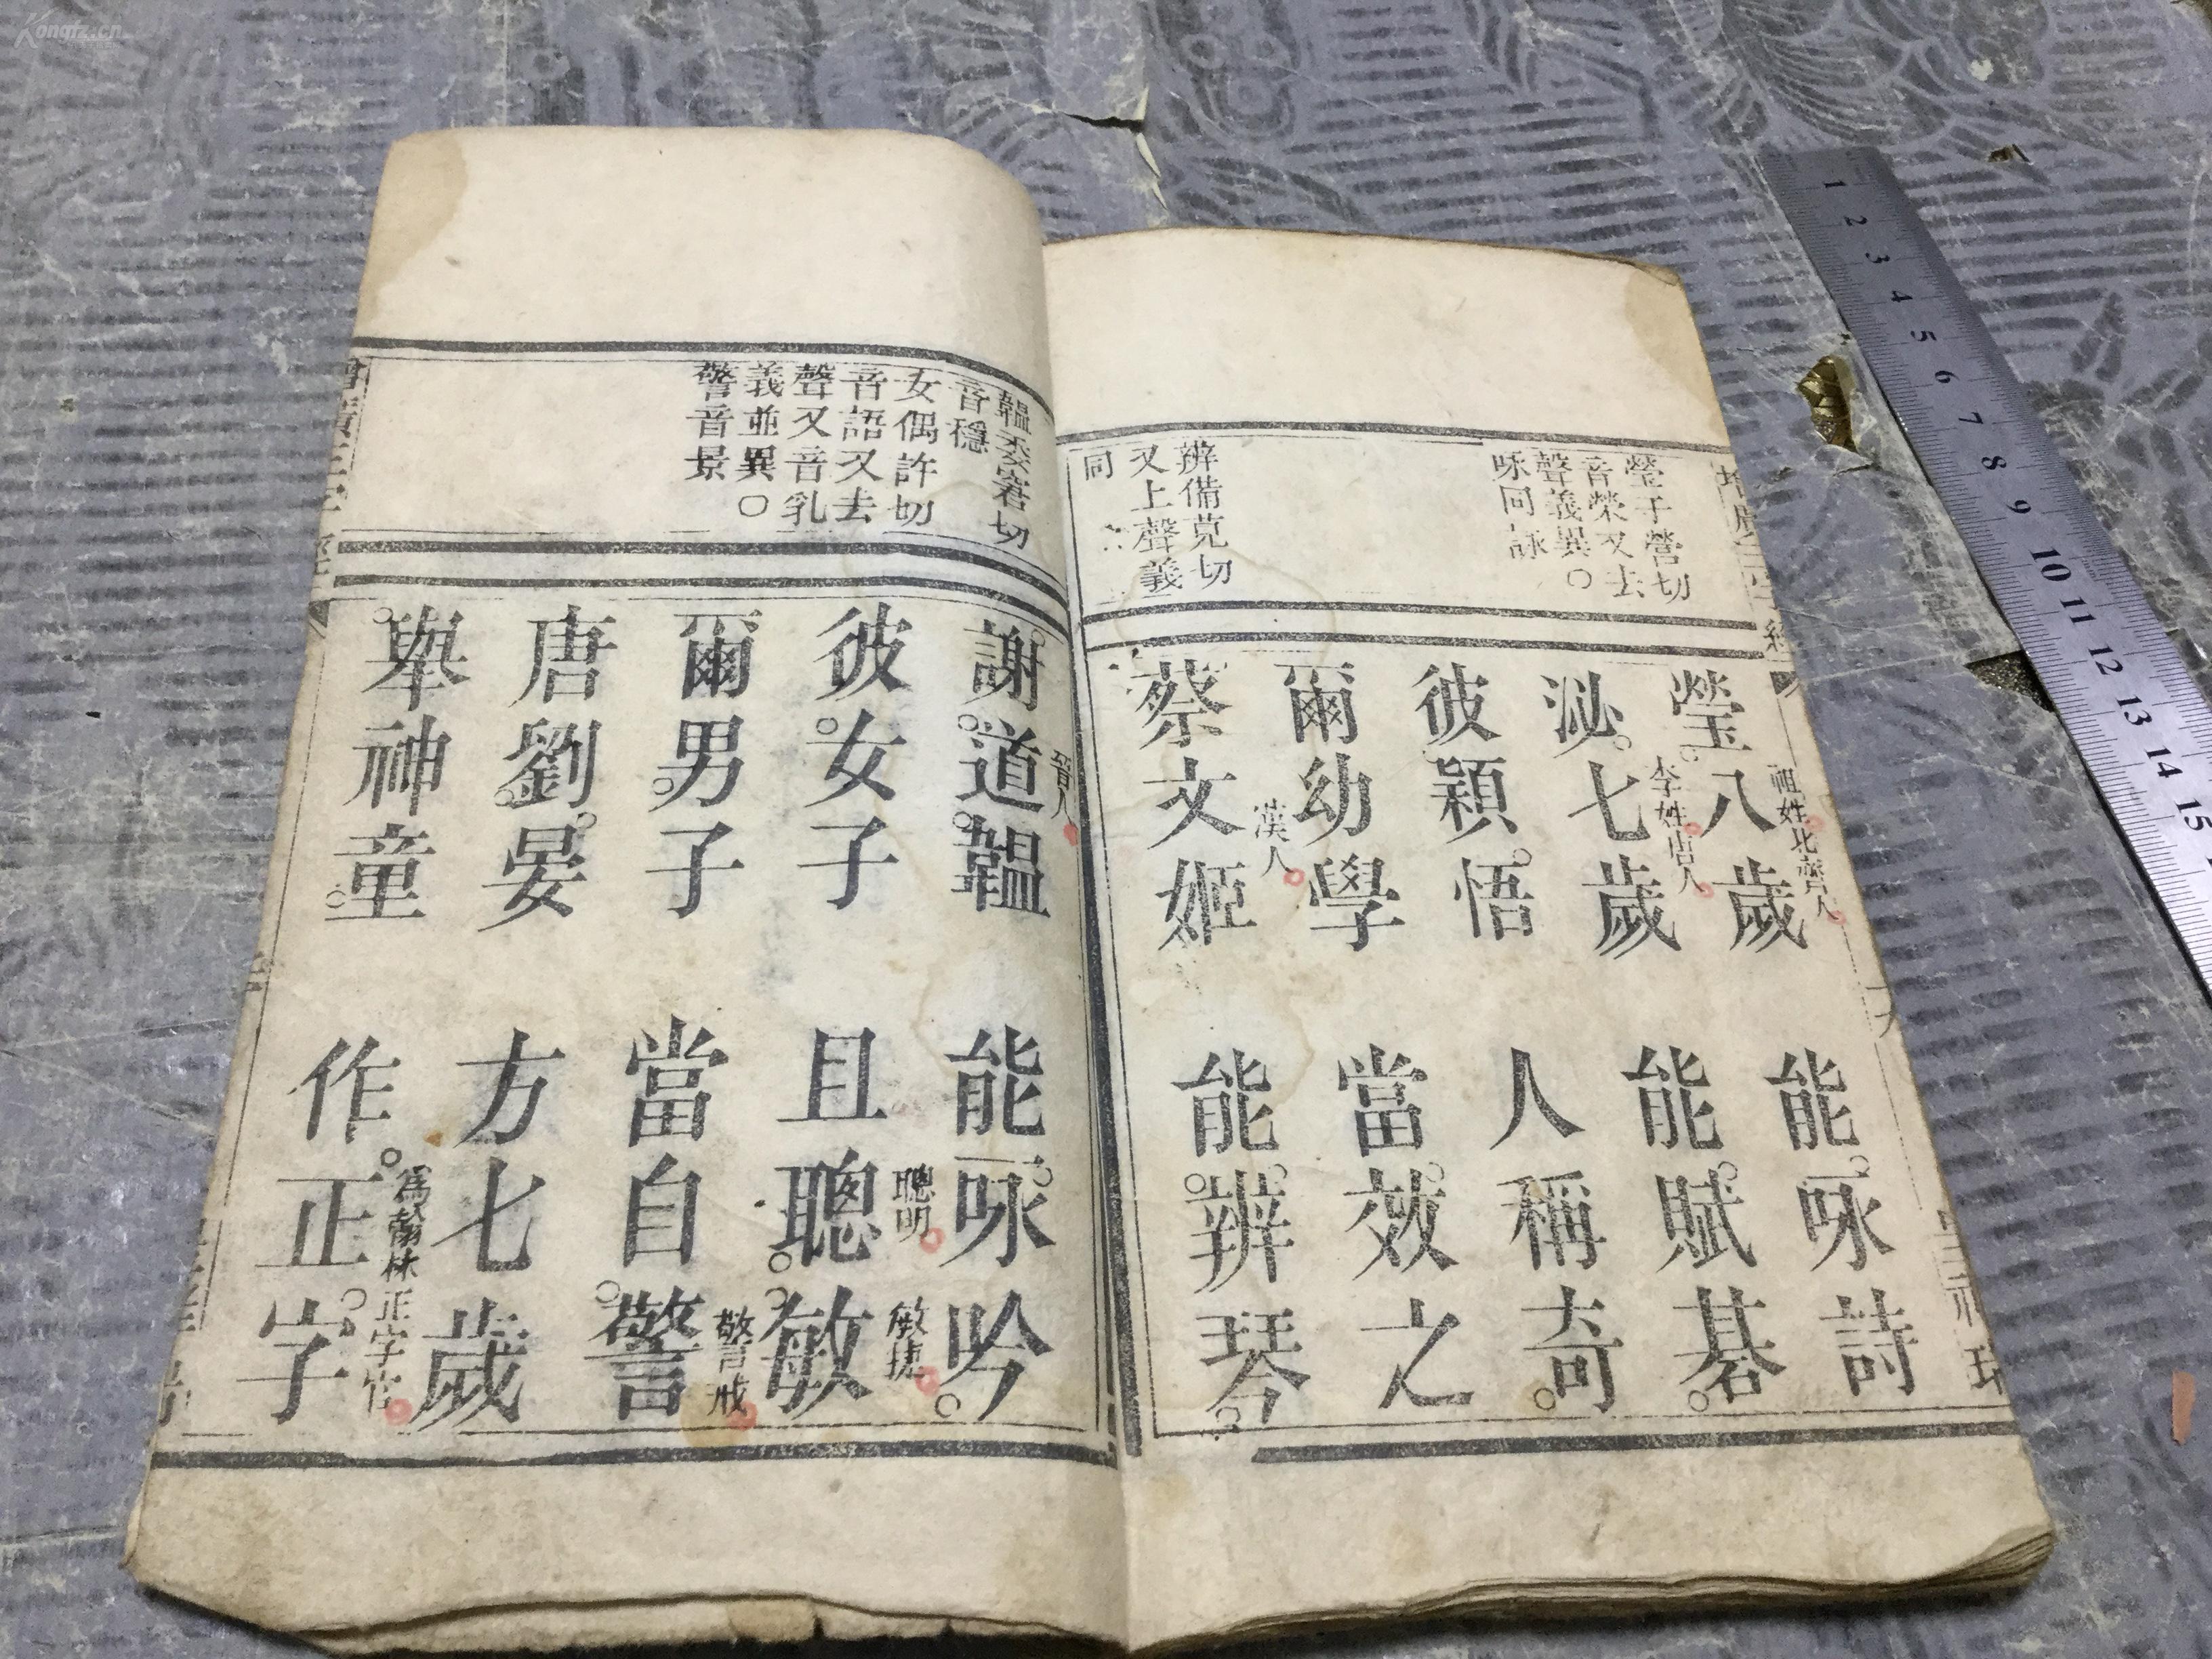 瑩子營切
音榮又去
聲義異○
咏同詠
辨備莧切
又上聲義
同
瑩八歲
能咏詩
祖姓北齊人
泌七歲
能賦碁
李姓唐人
彼穎悟
人稱奇
爾幼學
當效之
蔡文姬
能辨琴
漢人
韞委窘切
音穩
女偶許切
音語又去
聲又音乳
義並異○
警音景
謝道韞
能咏吟
晉人
彼女子
且聰敏
聰明
敏捷
爾男子
當自警
警戒
唐劉晏
方七歲
舉神童
作正字
為翰林正字官
增廣三字經
Kongfz.cn
1 2 3 4 5 6 7 8 9 10 11 12 13 14 15